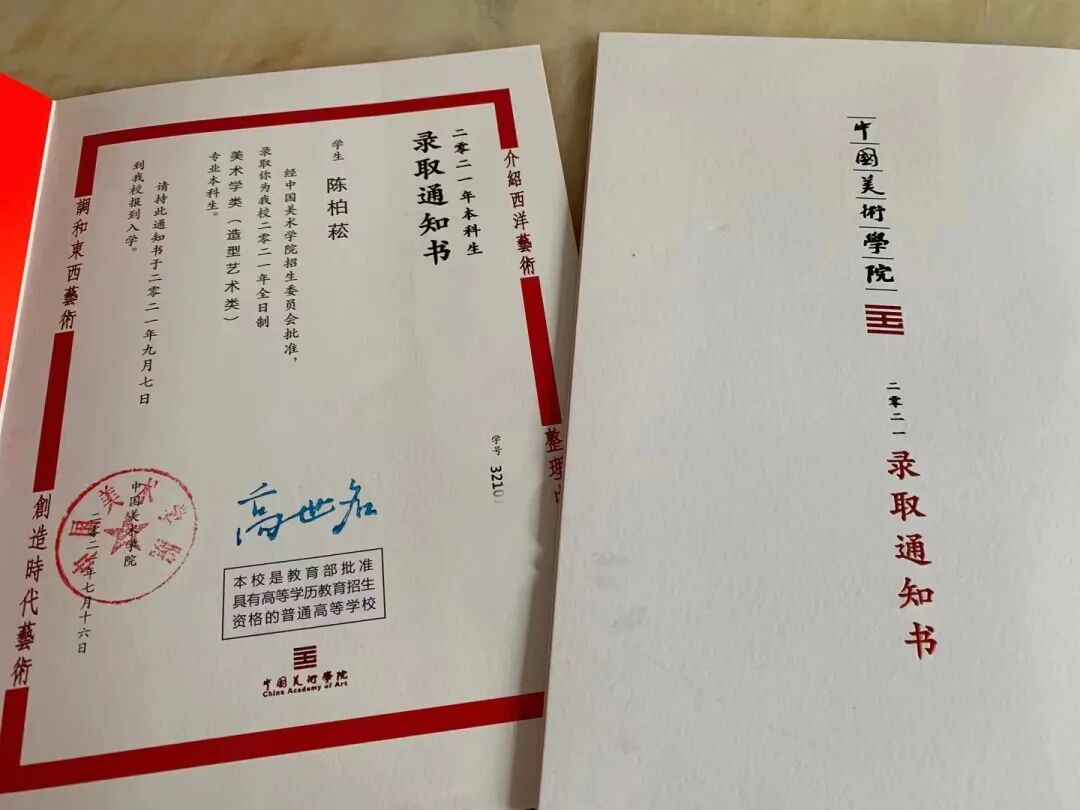 介紹西洋藝術
整理
二零二一年本科生
录取通知书
学生 陈柏菘
经中国美术学院招生委员会批准，
录取你为我校二零二一年全日制
美术学类（造型艺术类）
专业本科生。
请持此通知书于二零二一年九月七日
到我校报到入学。
学号 3210
高世名
本校是教育部批准
具有高等学历教育招生
资格的普通高等学校
中國美術學院
China Academy of Art
中国美术学院
二零二一年七月十六日
中国美术学院
調和東西藝術
創造時代藝術
中國美術學院
二零二一
录取通知书